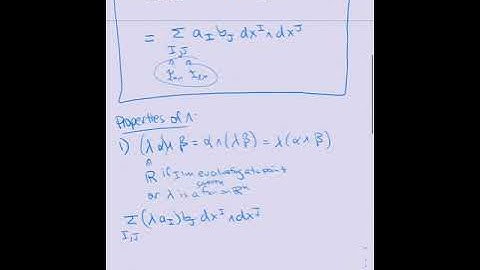 = Σ a_I b_J dx^I ∧ dx^J
I,J
Properties of Λ:
1) (λ α)∧ β = α ∧ (λ β) = λ (α ∧ β)
ℝ if I'm evaluating at a point
or λ is a fn on ℝⁿ
Σ (λ a_I) b_J dx^I ∧ dx^J
I,J